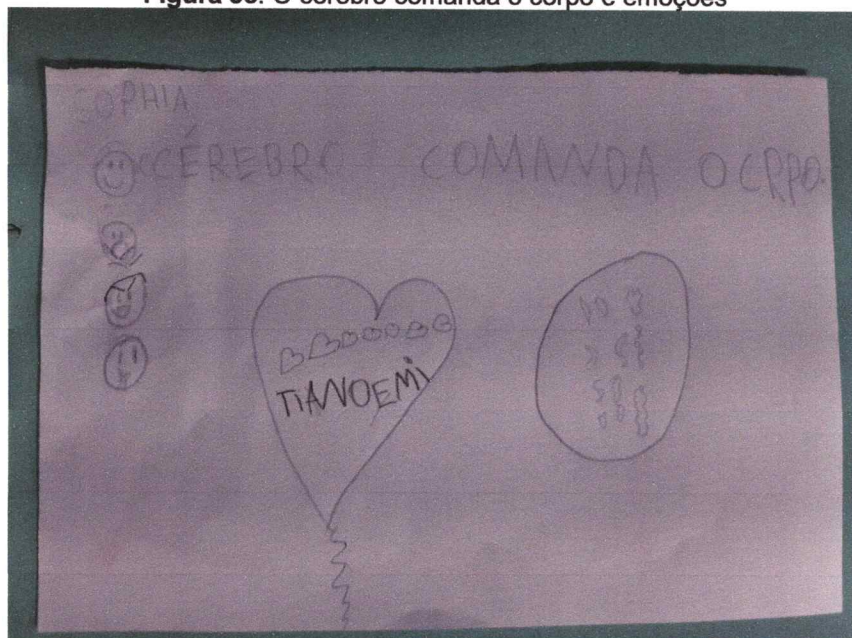 O cérebro comanda o corpo e emoções
SOPHIA
CÉREBRO COMANDA O CRPO.
TIANOEMI